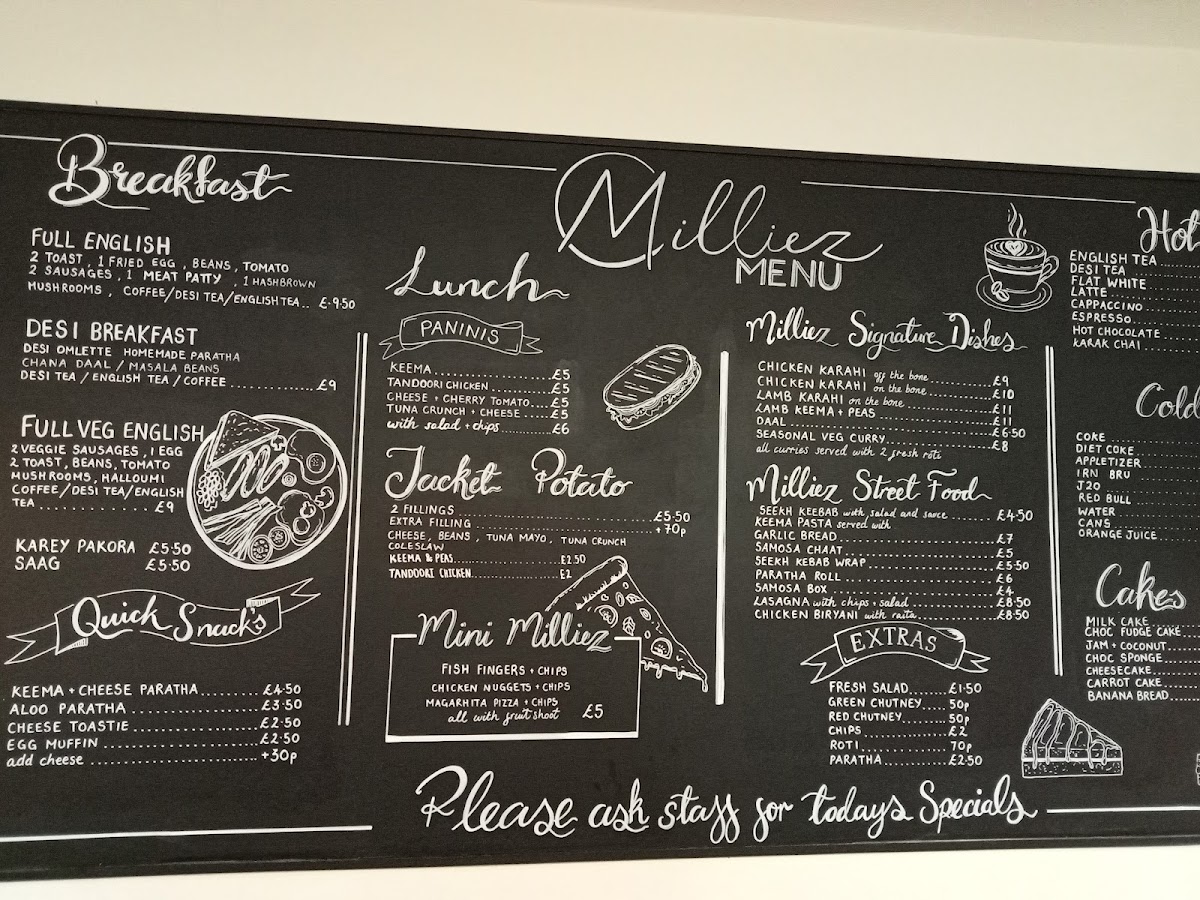 Breakfast
FULL ENGLISH
2 TOAST, 1 FRIED EGG, BEANS, TOMATO
2 SAUSAGES, 1 MEAT PATTY, 1 HASHBROWN
MUSHROOMS, COFFEE/DESI TEA/ENGLISH TEA.. £9.50
DESI BREAKFAST
DESI OMLETTE HOMEMADE PARATHA
CHANA DAAL / MASALA BEANS
DESI TEA / ENGLISH TEA / COFFEE............£9
FULL VEG ENGLISH
2 VEGGIE SAUSAGES, 1 EGG
2 TOAST, BEANS, TOMATO
MUSHROOMS, HALLOUMI
COFFEE/DESI TEA/ENGLISH
TEA............ £9
KAREY PAKORA £5.50
SAAG £5.50
Quick Snack's
KEEMA + CHEESE PARATHA.......£4.50
ALOO PARATHA.................£3.50
CHEESE TOASTIE...............£2.50
EGG MUFFIN...................£2.50
add cheese...................+30p
Milliez
MENU
Lunch
PANINIS
KEEMA....................£5
TANDOORI CHICKEN.........£5
CHEESE + CHERRY TOMATO....£5
TUNA CRUNCH + CHEESE.....£5
with salad + chips.......£6
Jacket Potato
2 FILLINGS...............£5.50
EXTRA FILLING............+70p
CHEESE, BEANS, TUNA MAYO, TUNA CRUNCH
COLESLAW
KEEMA & PEAS.............£2.50
TANDOORI CHICKEN.........£2
Mini Milliez
FISH FINGERS + CHIPS
CHICKEN NUGGETS + CHIPS
MAGARHITA PIZZA + CHIPS
all with fruit shoot £5
Milliez Signature Dishes
CHICKEN KARAHI off the bone.......£9
CHICKEN KARAHI on the bone........£10
LAMB KARAHI on the bone...........£11
LAMB KEEMA + PEAS.................£11
DAAL..............................£6.50
SEASONAL VEG CURRY................£8
all curries served with 2 fresh roti
Milliez Street Food
SEEKH KEEBAB with salad and sauce.....£4.50
KEEMA PASTA served with
GARLIC BREAD......................£7
SAMOSA CHAAT......................£5
SEEKH KEBAB WRAP..................£5.50
PARATHA ROLL......................£6
SAMOSA BOX........................£4
LASAGNA with chips + salad........£8.50
CHICKEN BIRYANI with raita........£8.50
EXTRAS
FRESH SALAD.......£1.50
GREEN CHUTNEY.....50p
RED CHUTNEY.......50p
CHIPS.............£2
ROTI..............70p
PARATHA...........£2.50
Hot
ENGLISH TEA
DESI TEA
FLAT WHITE
LATTE
CAPPACCINO
ESPRESSO
HOT CHOCOLATE
KARAK CHAI
Cold
COKE
DIET COKE
APPLETIZER
IRN BRU
J2O
RED BULL
WATER
CANS
ORANGE JUICE
Cakes
MILK CAKE
CHOC FUDGE CAKE
JAM + COCONUT
CHOC SPONGE
CHEESECAKE
CARROT CAKE
BANANA BREAD
Please ask staff for todays Specials